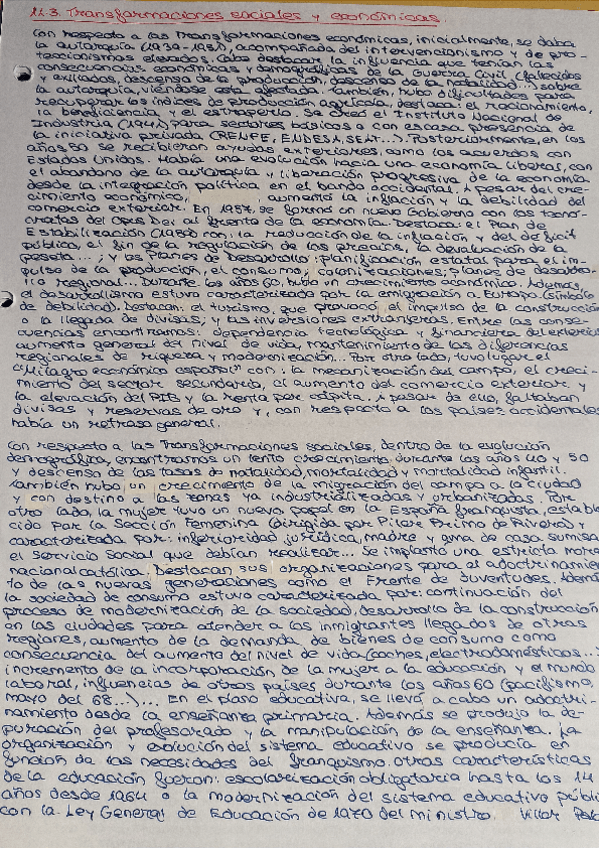 11.3. Transformaciones sociales y económicas.
Con respecto a las Transformaciones económicas, inicialmente, se daba
la autarquía (1939-1951), acompañada del intervencionismo y de pro-
teccionismos elevados. Cabe destacar la influencia que tenían las
consecuencias económicas y demográficas de la Guerra Civil (fallecidos
y exiliados, descenso de la producción, descenso de la natalidad...) sobre
la autarquía, viéndose esta afectada. También, hubo dificultades para
recuperar los índices de producción agrícola, destaca: el racionamiento,
la beneficiencia y el estraperlo. Se creó el Instituto Nacional de
Industria (1941) para sectores básicos o con escasa presencia de
la iniciativa privada (RENFE, ENDESA, SEAT...). Posteriormente, en los
años 50 se recibieron ayudas exteriores, como los acuerdos con
Estados Unidos. Había una evolución hacia una economía liberal, con
el abandono de la autarquía y liberación progresiva de la economía
desde la integración política en el bando occidental. A pesar del cre-
cimiento económico, aumentó la inflación y la debilidad del
comercio exterior. En 1957, se formó un nuevo Gobierno con los tecnó-
cratas del Opus Dei al frente de la economía. Destaca: el Plan de
Estabilización (1959) con: la reducción de la inflación y del déficit
pública, el fin de la regulación de los precios, la devaluación de la
peseta...; y los Planes de Desarrollo: planificación estatal para el im-
pulso de la producción, el consumo, colonizaciones; planes de desarro-
llo regional... Durante los años 60, hubo un crecimiento económico. Además,
el desarrollismo estuvo caracterizado por la emigración a Europa (símbolo
de debilidad). Destacan: el turismo, que provocó el impulso de la construcción
o la llegada de divisas; y las inversiones extranjeras. Entre las conse-
cuencias encontramos: dependencia tecnológica y financiera del exterior,
aumento general del nivel de vida, mantenimiento de las diferencias
regionales de riqueza y modernización... Por otro lado, tuvo lugar el
"Milagro económico español" con: la mecanización del campo, el creci-
miento del sector secundario, el aumento del comercio exterior y
la elevación del PIB y la renta per cápita. A pesar de ello, faltaban
divisas y reservas de oro y, con respecto a los países occidentales
había un retraso general.
Con respecto a las Transformaciones sociales, dentro de la evolución
demográfica, encontramos un lento crecimiento durante los años 40 y 50
y descenso de las tasas de natalidad, mortalidad y mortalidad infantil.
También hubo un crecimiento de la migración del campo a la ciudad
y con destino a las zonas ya industrializadas y urbanizadas. Por
otro lado, la mujer tuvo un nuevo papel en la España franquista, estable
cido por la Sección Femenina (dirigida por Pilar Primo de Rivera) y
caracterizada por: inferioridad jurídica, madre y ama de casa sumisa
el Servicio Social que debían realizar... Se implantó una estricta mora
nacionalcatólica. Destacan sus organizaciones para el adoctrinamien
to de las nuevas generaciones como el Frente de Juventudes. Ademá
la sociedad de consumo estuvo caracterizada por: continuación del
proceso de modernización de la sociedad, desarrollo de la construcción
en las ciudades para atender a los inmigrantes llegados de otras
regiones, aumento de la demanda de bienes de consumo como
consecuencia del aumento del nivel de vida (coches, electrodomésticos...)
incremento de la incorporación de la mujer a la educación y el mundo
laboral, influencias de otros países durante los años 60 (pacifismo,
mayo del 68...)... En el plano educativa, se llevó a cabo un adoctri-
namiento desde la enseñanza primaria. Además se produjo la de-
puración del profesorado y la manipulación de la enseñanza. La
organización y evolución del sistema educativo se producía en
función de las necesidades del franquismo. Otras características
de la educación fueron: escolarización obligatoria hasta los 14
años desde 1964 o la modernización del sistema educativo públi
con la Ley General de Educación de 1970 del ministro Villar